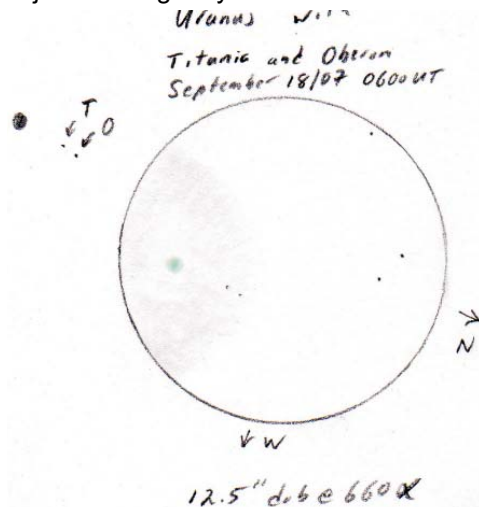 Uranus with
Titania and Oberon
September 18/07 0600UT
T
O
N
W
12.5" dob @ 660X